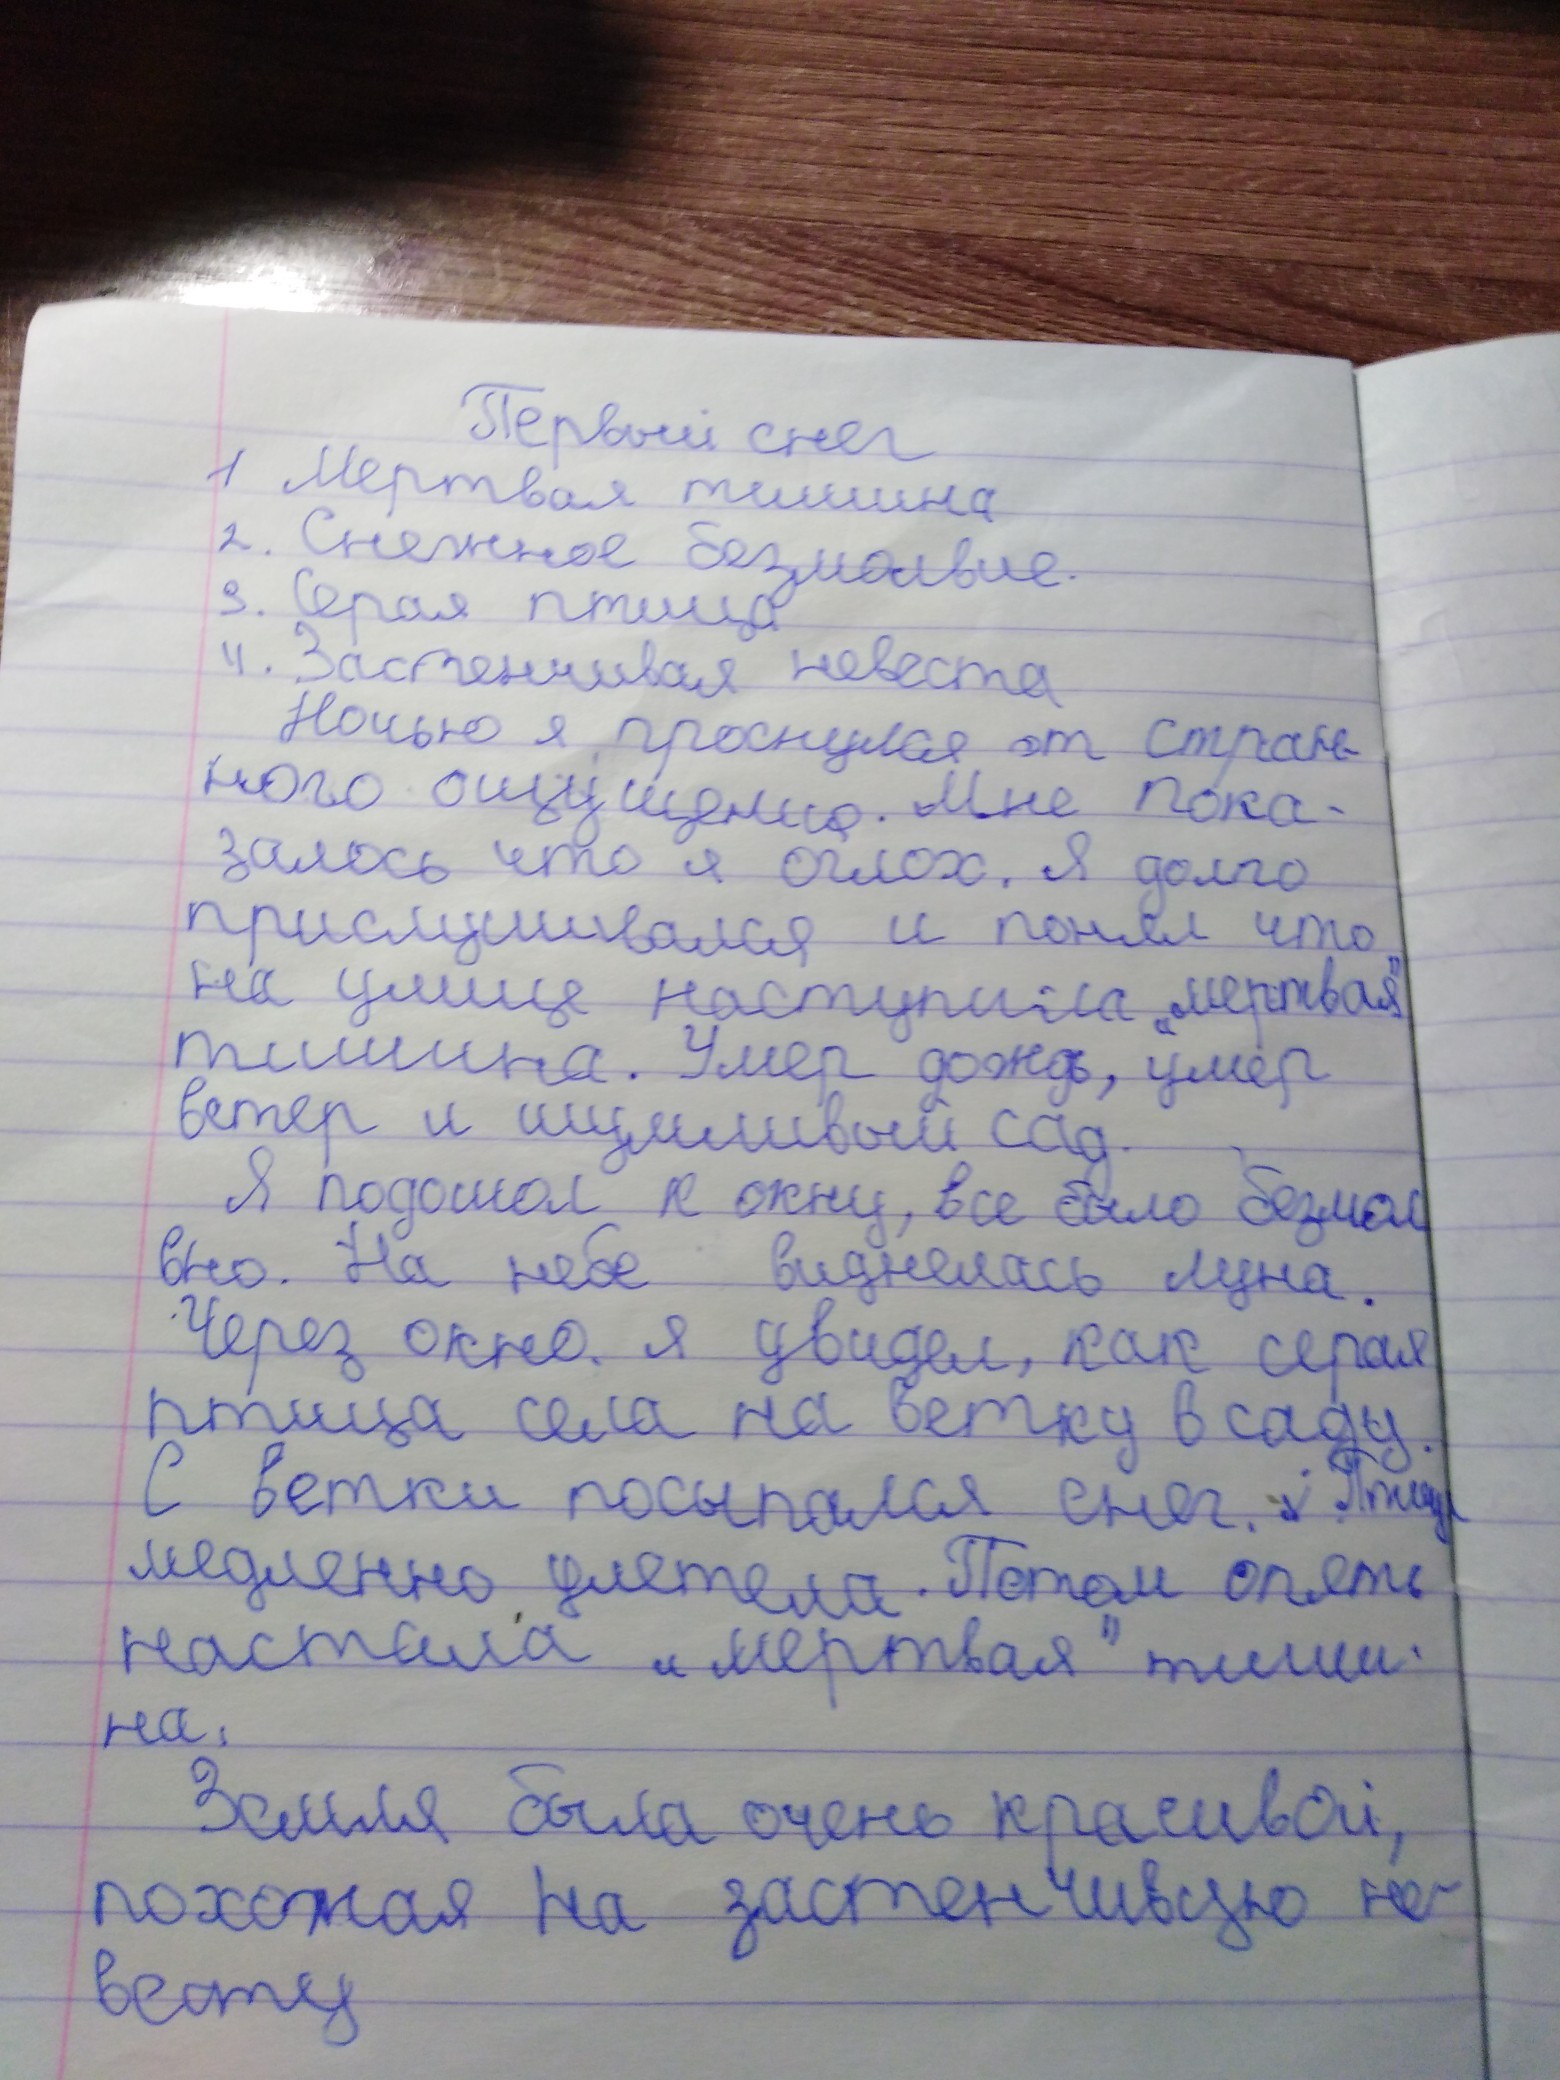 Первый снег
1 Мертвая тишина
2. Снежное безмолвие.
3. Серая птица
4. Застенчивая невеста
Ночью я проснулся от стран-
ного ощущения. Мне пока-
залось что я оглох. Я долго
прислушивался и понял что
на улице наступила „мертвая"
тишина. Умер дождь, умер
ветер и шумливый сад.
Я подошол к окну, все было безмол
вно. На небе виднелась луна.
Через окно. я увидел, как серая
птица села на ветку в саду.
С ветки посыпался снег. Птица
медленно улетела. Потом опять
настала „мертвая" тиши-
на.
Земля была очень красивой,
похожая на застенчивую не-
весту